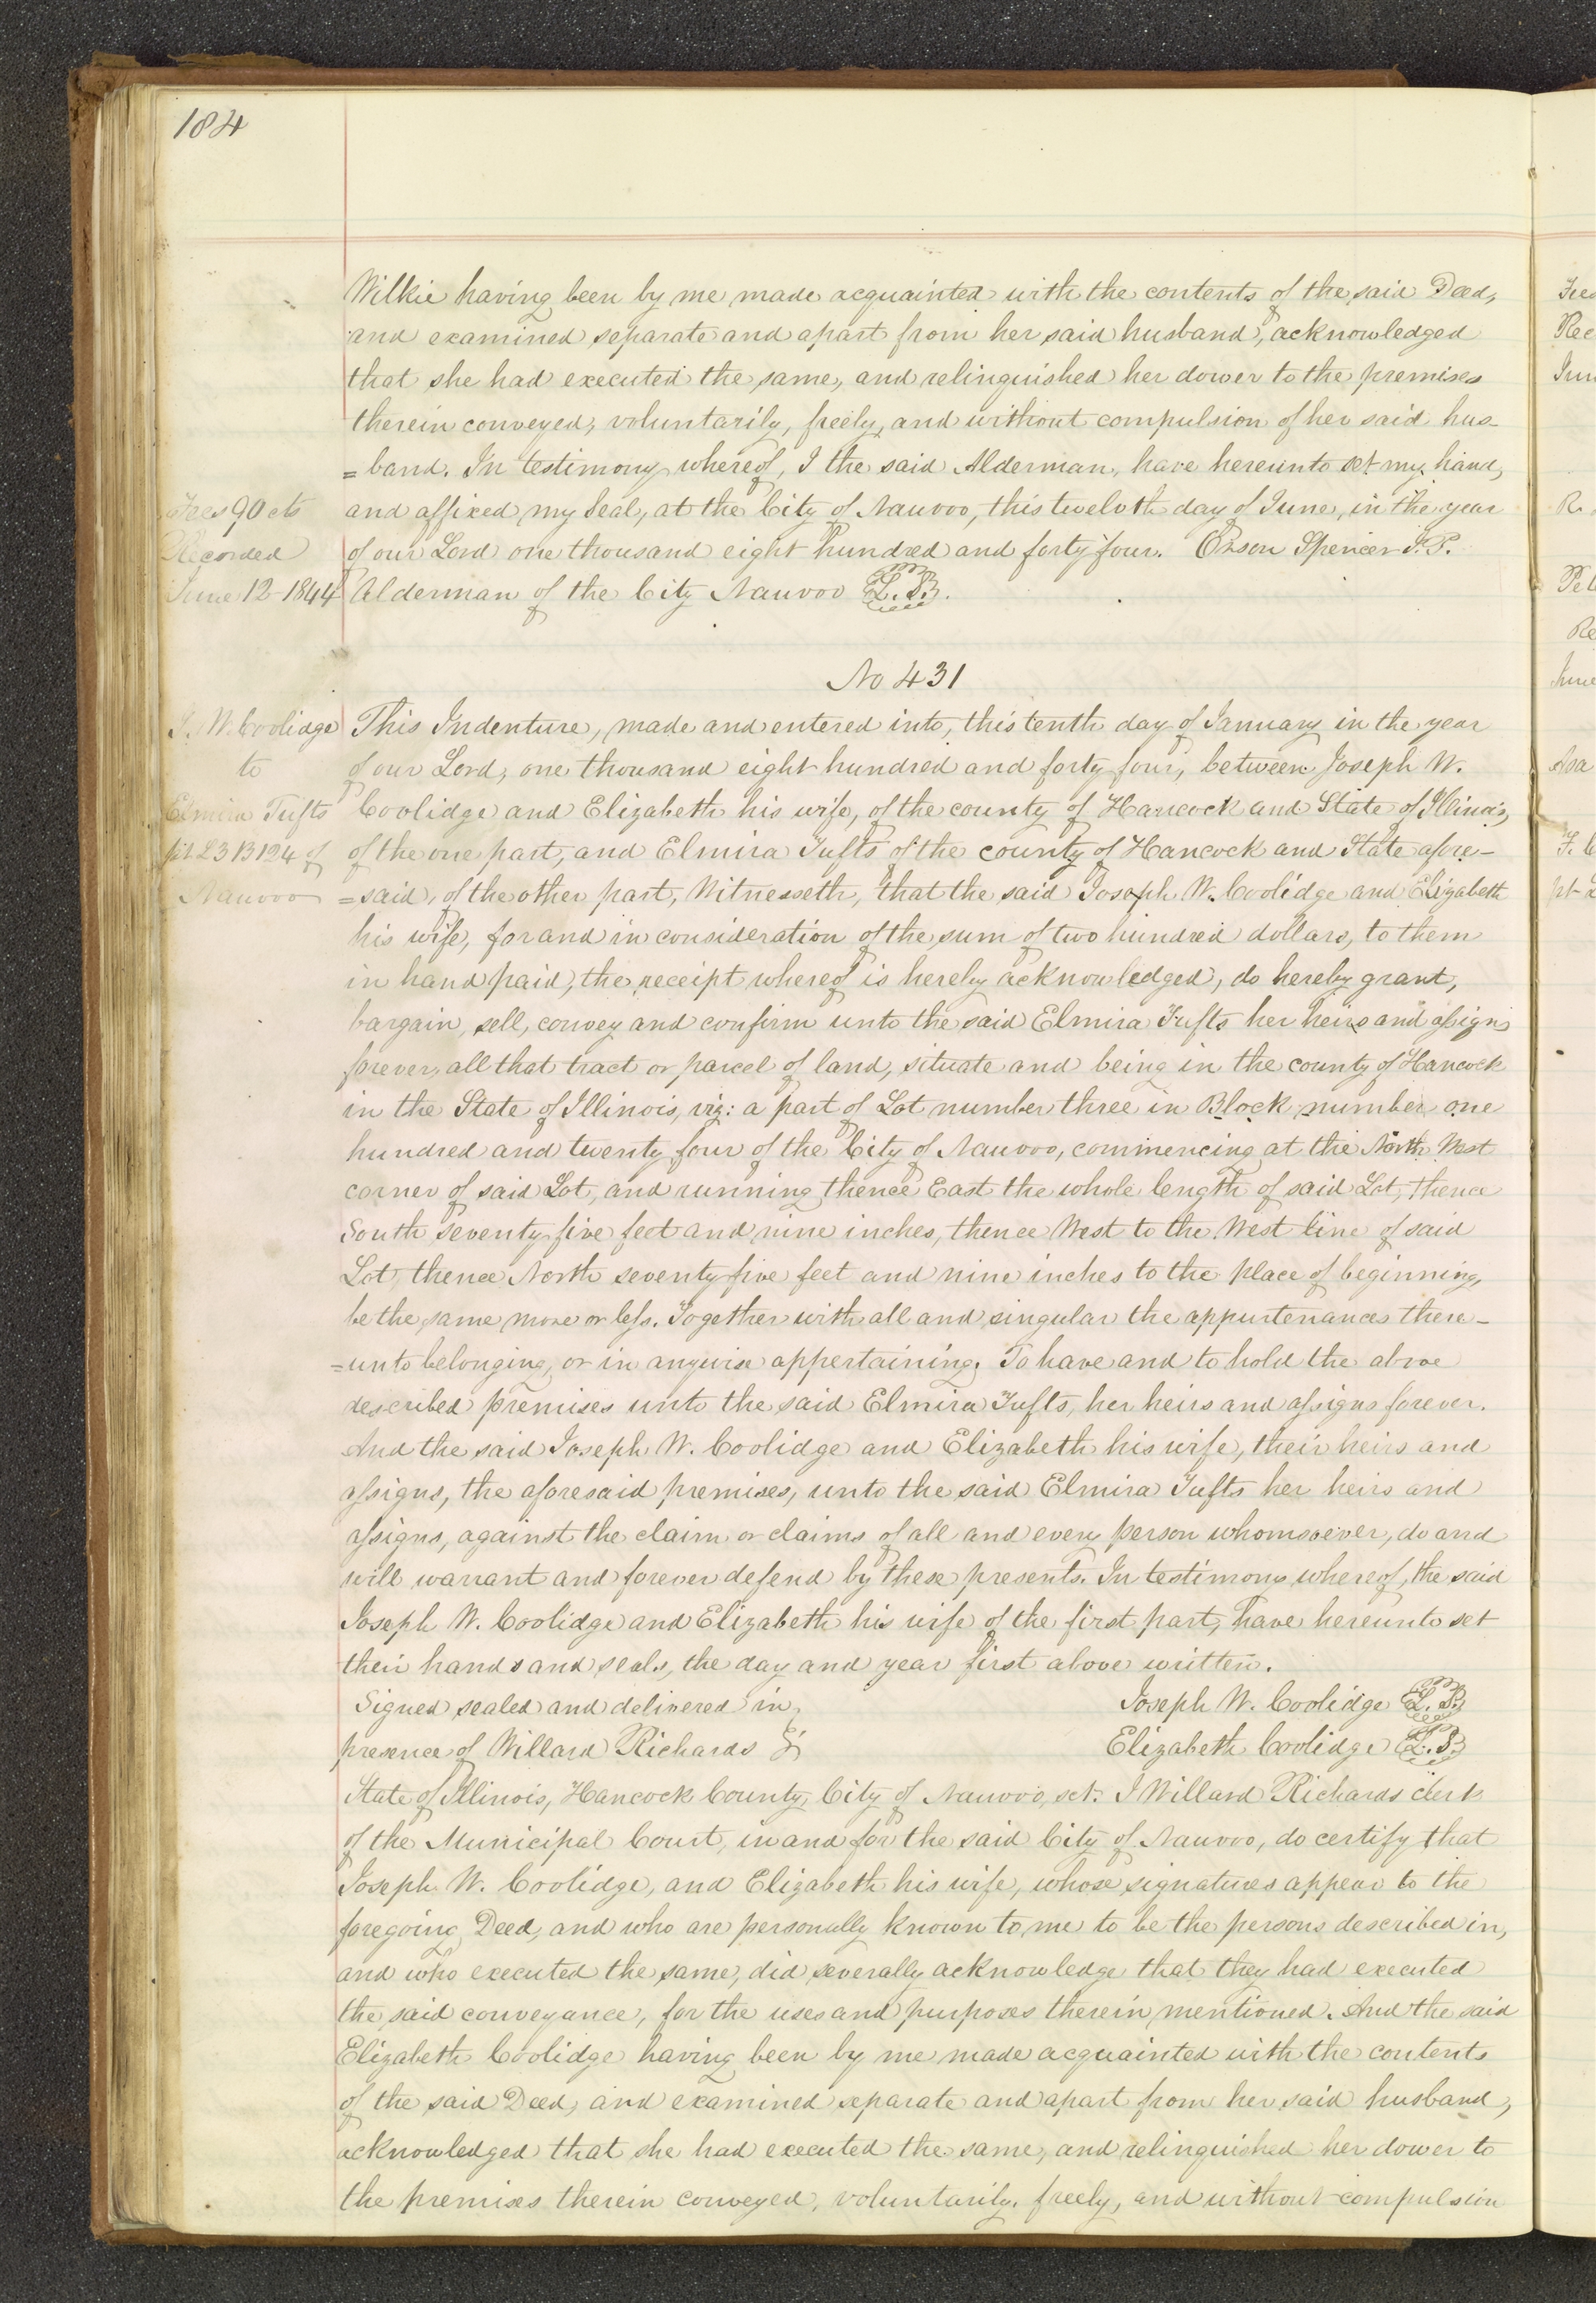 184
Wilkie having been by me made acquainted with the contents of the said Deed,
and examined separate and apart from her said husband, acknowledged
that she had executed the same, and relinquished her dower to the premises
therein conveyed, voluntarily, freely, and without compulsion of her said hus-
=band. In testimony whereof, I the said Alderman, have hereunto set my hand,
Fees 90 cts
and affixed my Seal, at the City of Nauvoo, this twelvth day of June, in the year
Recorded
of our Lord one thousand eight hundred and forty four. Orson Spencer J.P.
June 12 1844
Alderman of the City Nauvoo L.S.
No 431
J. W. Coolidge
This Indenture, made and entered into, this tenth day of January in the year
to
of our Lord, one thousand eight hundred and forty four, between Joseph W.
Elmira Tufts
Coolidge and Elizabeth his wife, of the county of Hancock and State of Illinois,
pt L 3 B 124 of
of the one part, and Elmira Tufts of the county of Hancock and State afore-
Nauvoo
=said, of the other part, Witnesseth, that the said Joseph W. Coolidge and Elizabeth
his wife, for and in consideration of the sum of two hundred dollars, to them
in hand paid, the receipt whereof is hereby acknowledged, do hereby grant,
bargain, sell, convey and confirm unto the said Elmira Tufts her heirs and assigns
forever, all that tract or parcel of land, situate and being in the county of Hancock
in the State of Illinois, viz: a part of Lot number three in Block number one
hundred and twenty four of the City of Nauvoo, commencing at the North West
corner of said Lot, and running thence East the whole length of said Lot, thence
South seventy five feet and nine inches, thence West to the West line of said
Lot, thence North seventy five feet and nine inches to the place of beginning,
be the same more or less. Together with all and singular the appurtenances there-
=unto belonging, or in anywise appertaining. To have and to hold the above
described premises unto the said Elmira Tufts, her heirs and assigns forever.
And the said Joseph W. Coolidge and Elizabeth his wife, their heirs and
assigns, the aforesaid premises, unto the said Elmira Tufts her heirs and
assigns, against the claim or claims of all and every person whomsoever, do and
will warrant and forever defend by these presents. In testimony whereof, the said
Joseph W. Coolidge and Elizabeth his wife of the first part, have hereunto set
their hands and seals, the day and year first above written.
Signed sealed and delivered in
Joseph W. Coolidge L.S.
presence of Willard Richards
Elizabeth Coolidge L.S.
State of Illinois, Hancock County, City of Nauvoo, sct. I Willard Richards clerk
of the Municipal Court, in and for the said City of Nauvoo, do certify that
Joseph W. Coolidge, and Elizabeth his wife, whose signatures appear to the
foregoing Deed, and who are personally known to me to be the persons described in,
and who executed the same, did severally acknowledge that they had executed
the said conveyance, for the uses and purposes therein mentioned. And the said
Elizabeth Coolidge having been by me made acquainted with the contents
of the said Deed, and examined separate and apart from her said husband,
acknowledged that she had executed the same, and relinquished her dower to
the premises therein conveyed, voluntarily, freely, and without compulsion